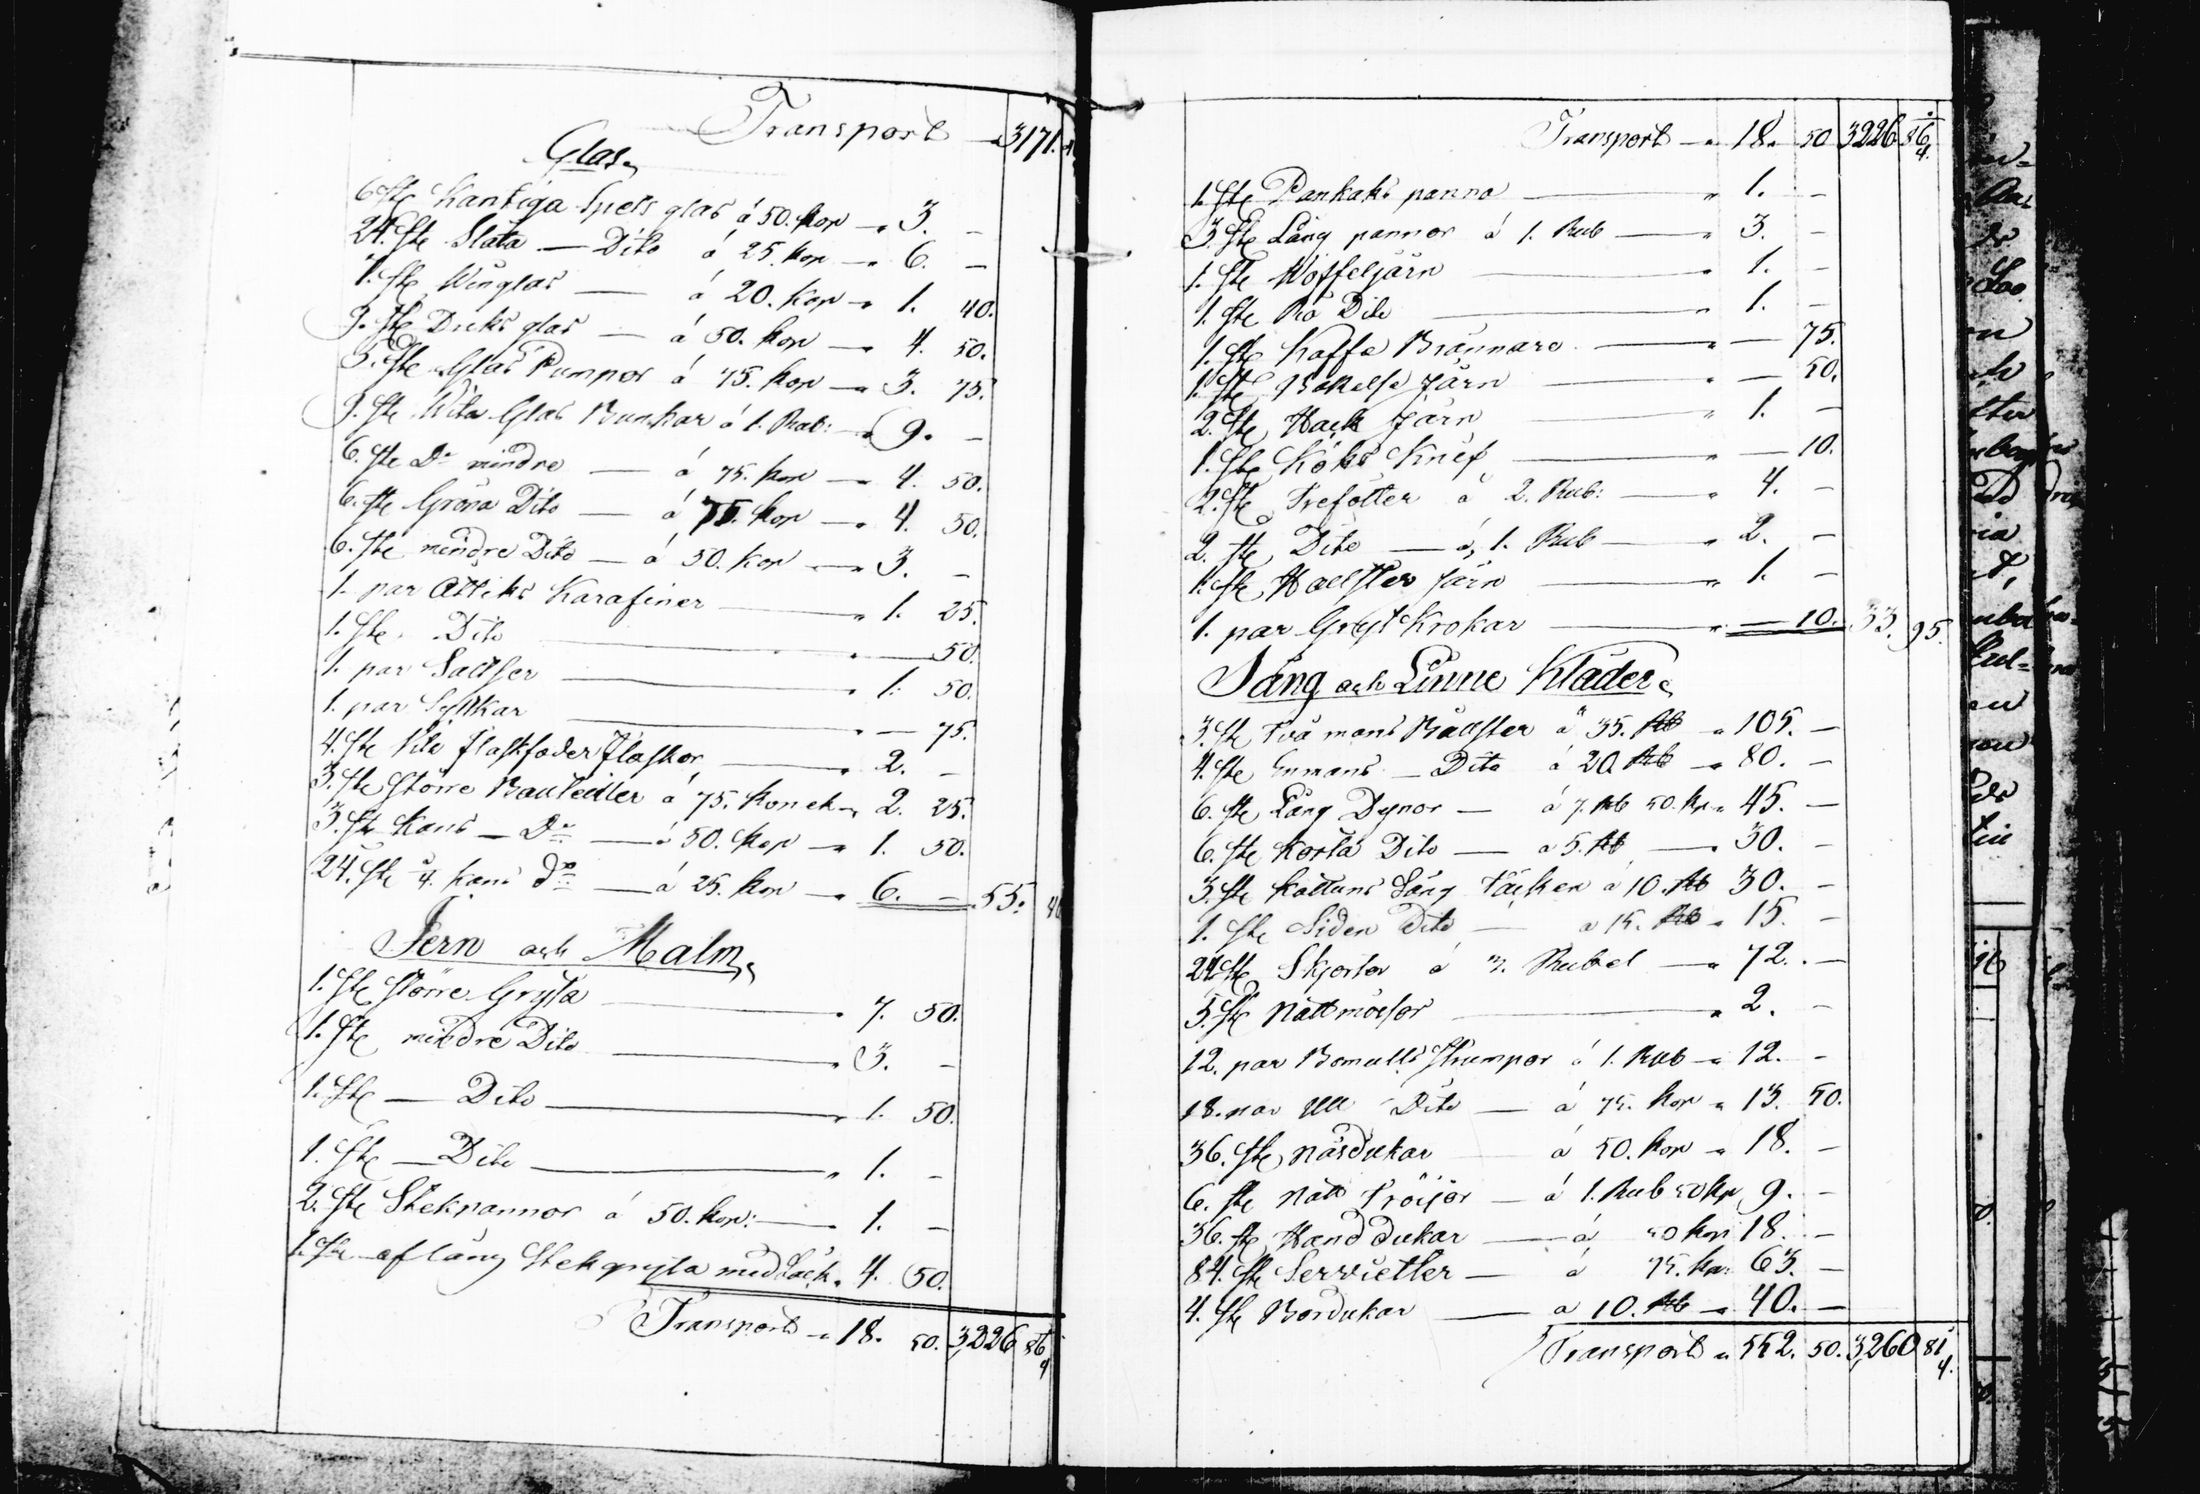 Transport — 3171.
Glas
6. ste Kantiga Spets glas á 50. Kop — 3. –
24. ste Släta — Dito á 25. Kop — 6. –
7. ste Winglas — á 20. Kop — 1. 40.
9. ste Dricks glas — á 50. Kop — 4. 50.
5. ste Glas Pumpor á 75. Kop — 3. 75.
9. ste Hvita Glas Bunkar á 1. Rub: — 9. –
6. ste Do mindre — á 75. Kop — 4. 50.
6. ste Gröna Dito — á 75. Kop — 4. 50.
6. ste mindre Dito — á 50. Kop — 3. –
1. par Ättiks Karafiner — 1. 25.
1. ste Dito — 50.
1. par Saltser — 1. 50.
1. par Syltkar — 75.
4. ste flaskfoder flaskor — 2. –
3. ste större Bouteiller á 75. Kop — 2. 25.
3. ste Kans — Do — á 50. Kop — 1. 50.
24. ste ¼ Kans Do — á 25. Kop — 6. – 55. 40
Jern och Malm
1. ste större Gryta — 7. 50.
1. ste mindre Dito — 3. –
1. ste — Dito — 1. 50.
1. ste — Dito — 1. –
2. ste Stekpannor á 50. Kop: — 1. –
1. ste aflång Stekgryta med Lock 4. 50.
Transport — 18. 50. 3,226 86 4
Transport — 18. 50 3226 86 4.
1. ste Pankaks panna — 1. –
3. ste Lång pannor á 1. Rub — 3. –
1. ste Woffeljärn — 1. –
1. ste Rå Dito — 1. –
1. ste Kaffe Brännare — 75.
1. ste Bakelse Järn — 50.
2. ste Hack Järn — 1. –
1. ste Köks Knif — 10.
2. ste Trefötter á 2. Rub: — 4. –
2. ste Dito — á 1. Rub — 2. –
1. ste Halster Järn — 1. –
1. par Gryt Krokar — 10. 33. 95.
Säng och Linne Kläder
3. ste Två mans Bolster á 35. Rb — 105. –
4. ste Enmans — Dito á 20 Rb — 80. –
6. ste Lång Dynor — á 7. Rb 50. Kp 45. –
6. ste Korta Dito — á 5. Rb — 30. –
3. ste Kattuns Säng Täcken á 10. Rb 30. –
1. ste Siden Dito — á 15. Rb 15. –
24 ste Skjortor á 3. Rubel — 72. –
5. ste Nattmössor — 2. –
12. par Bomulls Strumpor á 1. Rub — 12. –
18. par Ull Dito — á 75. Kop 13. 50.
36. ste Näsdukar á 50. Kop — 18. –
6. ste Natt Tröijor — á 1. Rub 50 Kp 9. –
36. ste Handdukar — á 50 Kop 18. –
84. ste Servietter — á 75. Kop 63. –
4. ste Bordukar — á 10. Rb — 40. –
Transport 552. 50. 3,260 81 4.